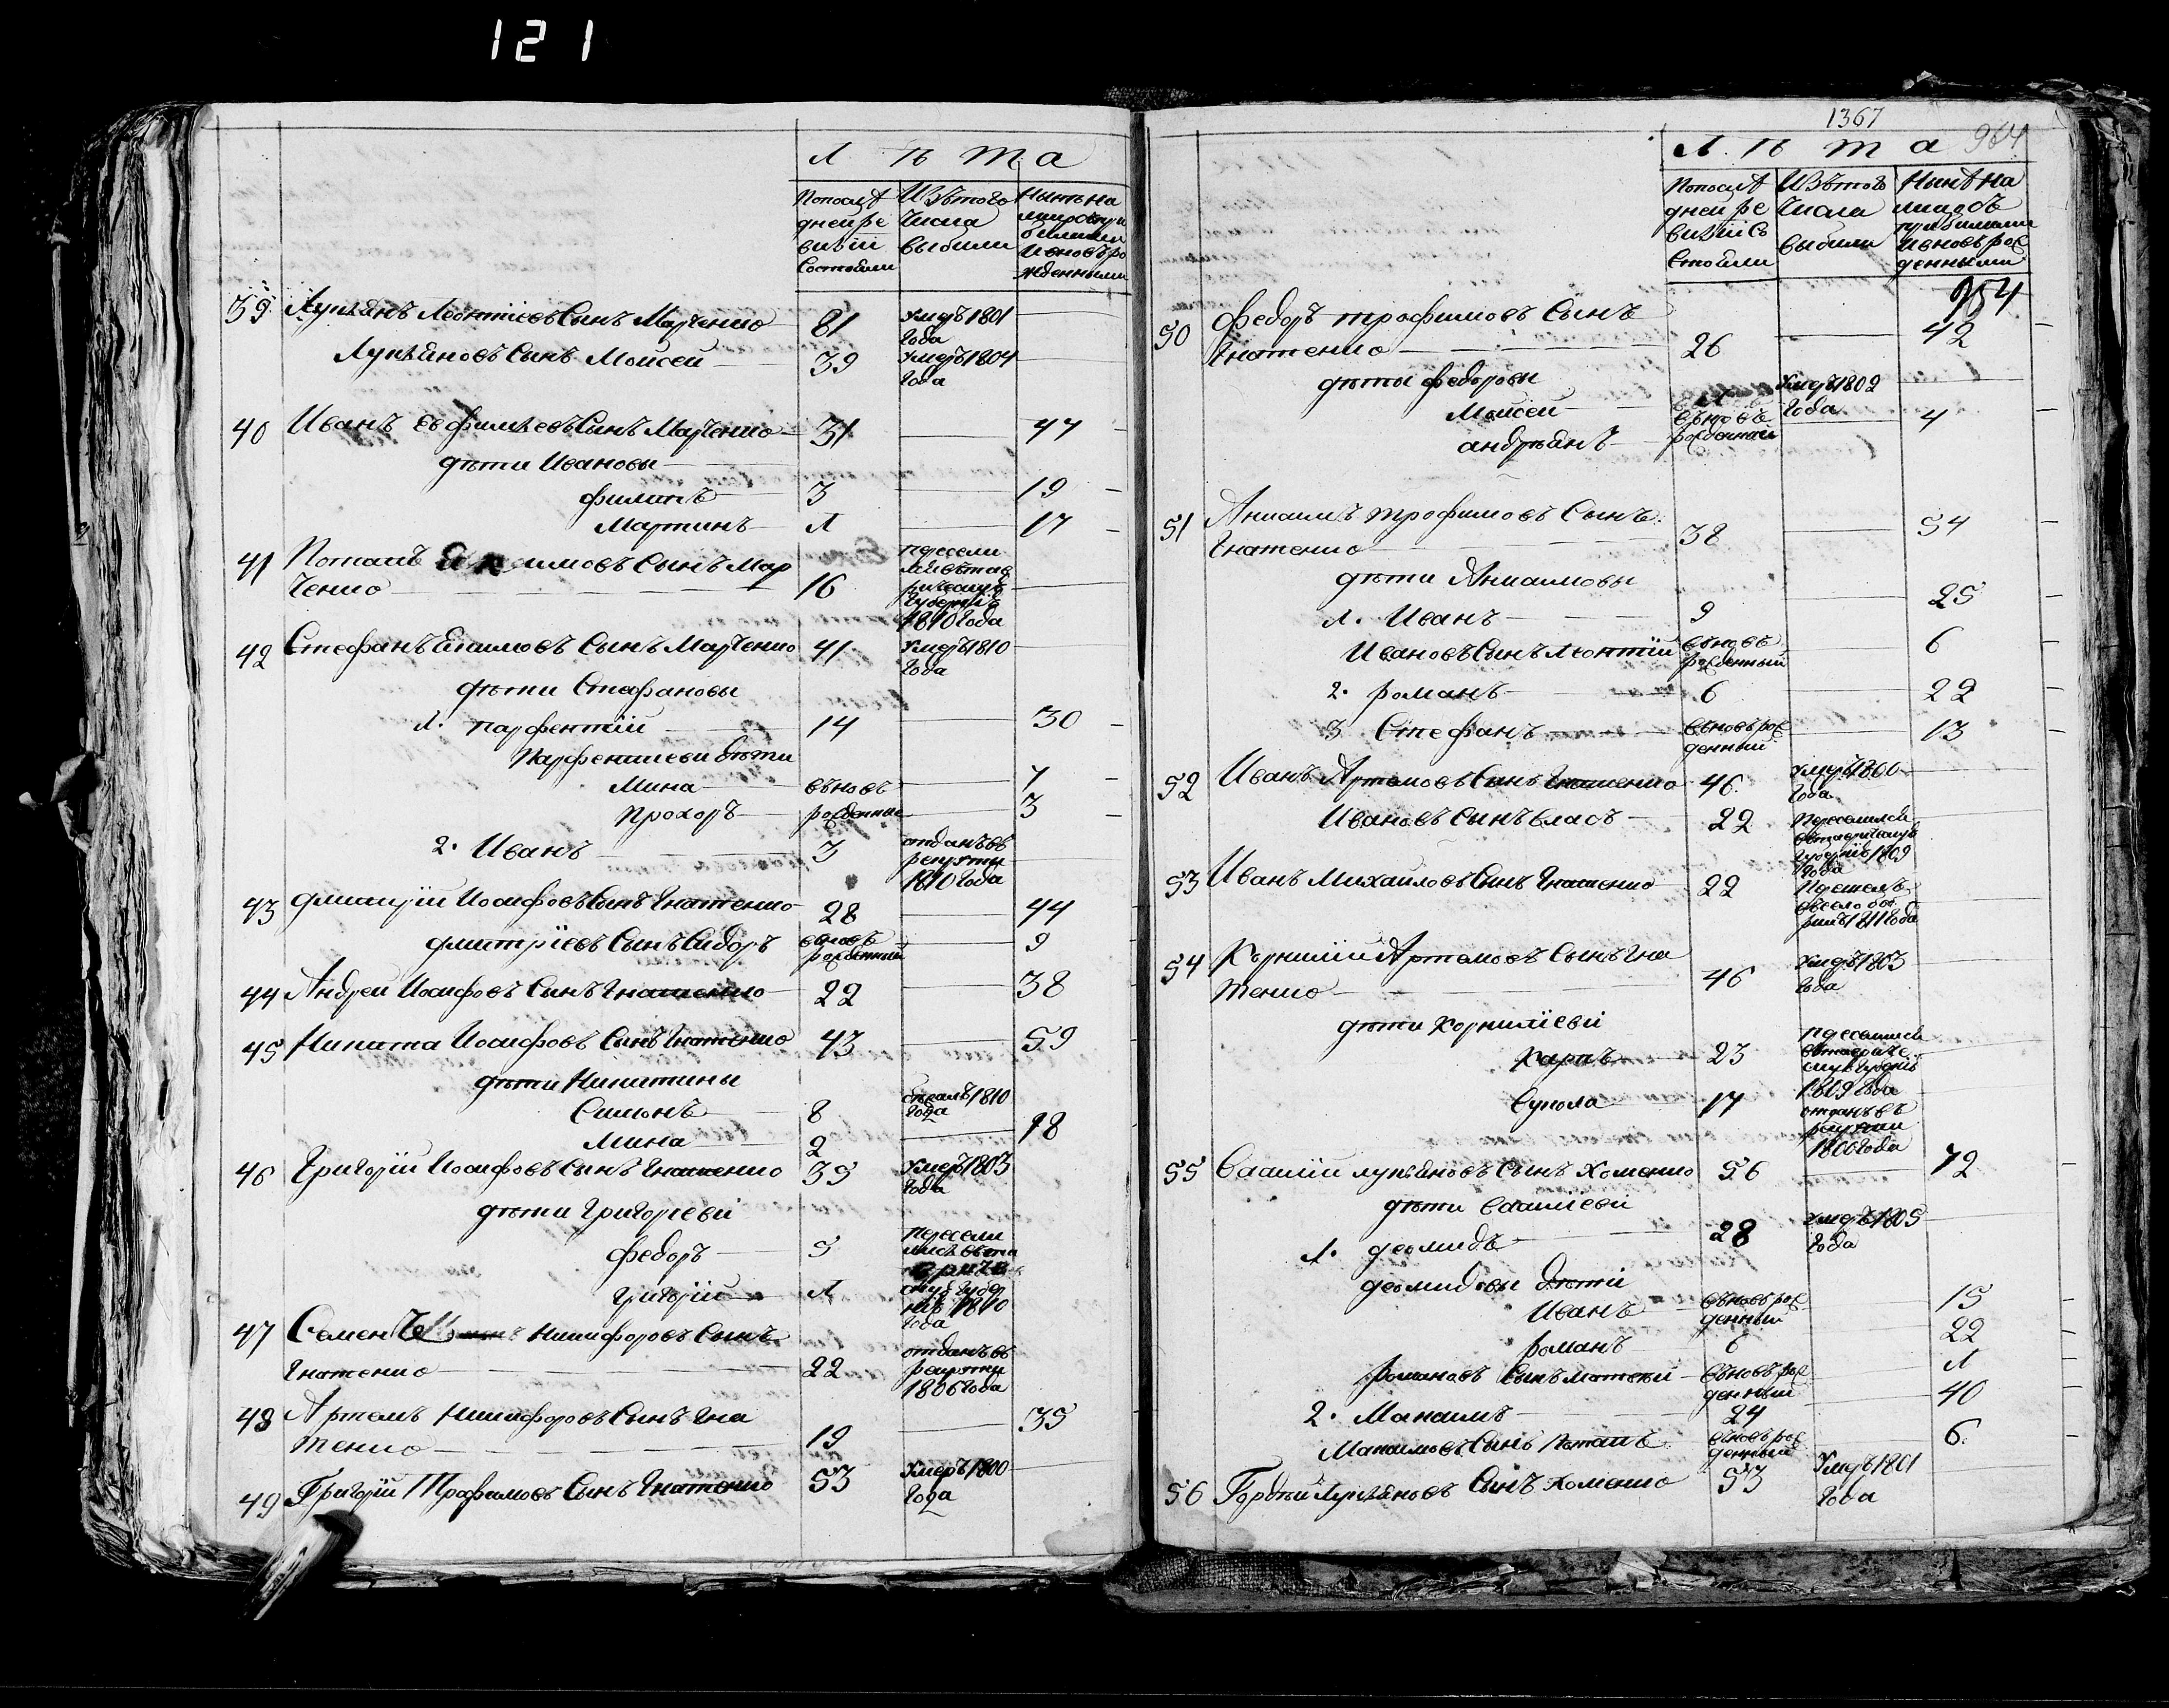 121
Л ѣ т а
Попослѣ
дней ре
визіи
Состояли
Изътого
числа
выбыли
Нынѣ на
лицо
и вновь ро
жденными
39 Лукьянъ Леонтіевъ Сынъ Марченко 81 Умеръ 1801 Года
Лукьяновъ Сынъ Моисей 39 Умеръ 1804 Года
40 Иванъ Ефимьевъ Сынъ Марченко 31 47
дѣти Ивановы
филипъ 3 19
Мартинъ 1 17
41 Потапъ Сынъ Мар
ченко 16 1810 Года
42 Стефанъ Сынъ Марченко 41 Умеръ 1810 Года
дѣти Стефановы
1. парфентій 14 30
Парфентиеви дѣти
Мина вновь 7
прохоръ рожденные 3
2. Иванъ 3 отданъ въ рекруты 1810 Года
43 дмитрій Иосифовъ Сынъ Гнатенко 28 44
дмитріевъ Сынъ Сидоръ вновь рожденный 9
44 Андрей Иосифовъ Сынъ Гнатенко 22 38
45 Никита Иосифовъ Сынъ Гнатенко 43 59
дѣти Никитины
Симонъ 8 бежалъ 1810 Года
Мина 2 18
46 Григорій Иосифовъ Сынъ Гнатенко 35 Умеръ 1803 Года
дѣти Григорїеви
федоръ 5
Григорій 1 1810 Года
47 Семенъ Никифоровъ Сынъ
Гнатенко 22 отданъ въ рекруты 1806 Года
48 Артемъ Никифоровъ Сынъ Гна
тенко 19 35
49 Григорій Трофимовъ Сынъ Гнатенко 53 Умеръ 1800 Года
1367
964
Л ѣ т а
Попослѣ
дней ре
визіи Со
стояли
Изътого
числа
выбыли
Нынѣ на
лицо съ
прибилыми
и вновь рож
денными
954
50 федоръ трофимовъ Сынъ
Гнатенко 26 42
дѣти федоровы
Моисей 1 Умеръ 1802 Года
андрѣянъ вновь рожденный 4
51 Якимъ трофимовъ Сынъ
Гнатенко 38 54
дѣти Якимовы
1. Иванъ 9 25
Ивановъ Сынъ Леонтій вновь рожденный 6
2. романъ 6 22
3 Стефанъ вновь рожденный 13
52 Иванъ Артемовъ Сынъ Гнатенко 46 Умеръ 1800 Года
Ивановъ Сынъ власъ 22 1809 Года
53 Иванъ Михайловъ Сынъ Гнатенко 22 1811 Года
54 Корнилій Артемовъ Сынъ Гна
тенко 46 Умеръ 1803 Года
дѣти корниліеви
карпъ 23 1809 Года
вукола 17 отданъ въ рекруты 1806 Года
55 василій лукьяновъ Сынъ хоменко 56 72
дѣти василіеви
1. деомидъ 28 Умеръ 1805 Года
деомидовы дѣти
Иванъ вновь рожденный 15
романъ 6 22
романовъ Сынъ матвѣй вновь рожденный 1
2. Максимъ 24 40
Максимовъ Сынъ Потапъ вновь рожденный 6.
56 Гордѣй Лукьяновъ Сынъ хоменко 53 Умеръ 1801 Года